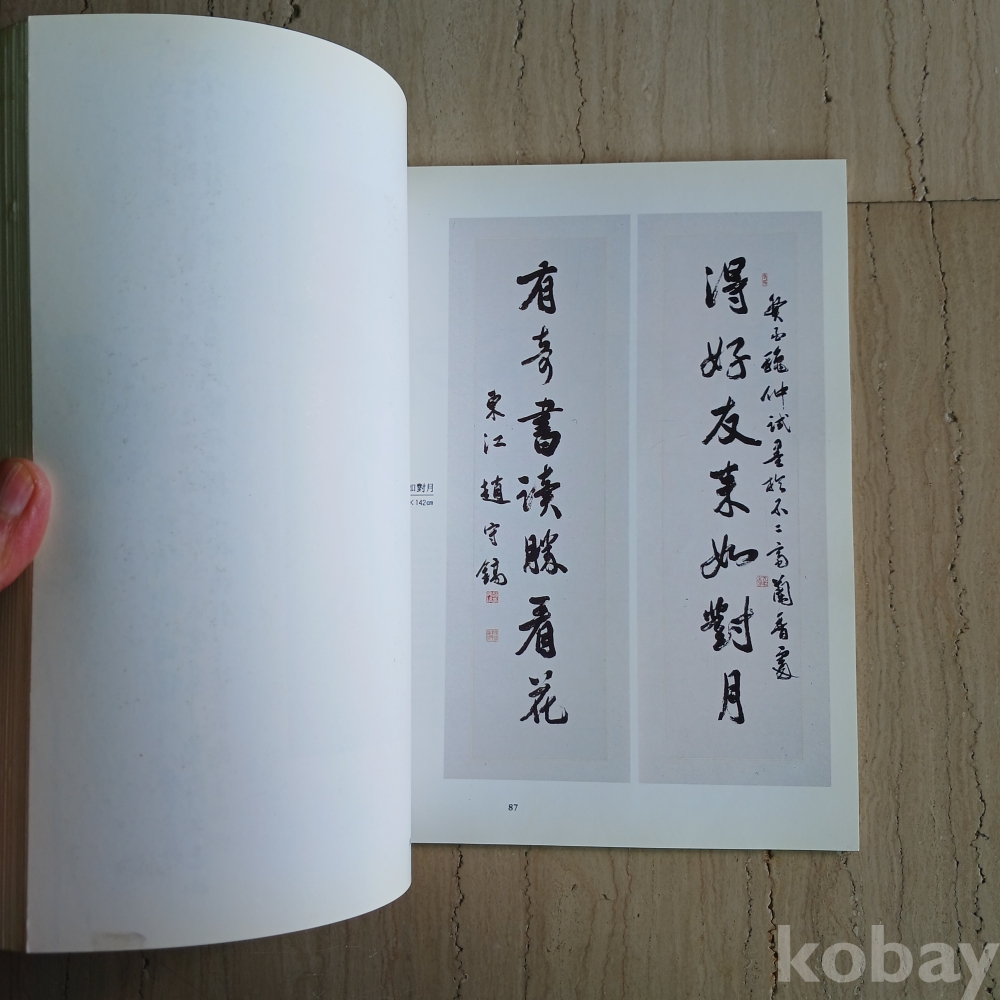 得好友来如對月
癸酉魏仲試墨於不二高蘭香處
有奇書读勝看花
東江趙守鎬
如對月
×142㎝
87
kobay